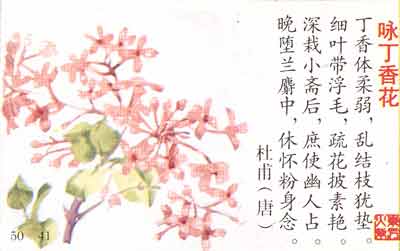 咏丁香花
丁香体柔弱，乱结枝犹垫。
细叶带浮毛，疏花披素艳。
深栽小斋后，庶使幽人占。
晚堕兰麝中，休怀粉身念。
杜甫（唐）
50 41